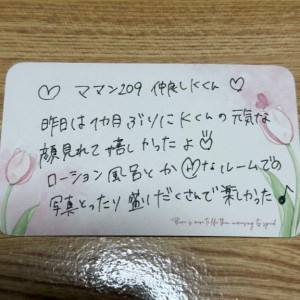 ♡ ママン209 仲良しKくん ♡
昨日は1カ月ぶりにKくんの元気な
顔見れて嬉しかったよ♡
ローション風呂とか♡なルームでの
写真とったり 盛りだくさんで楽しかった♪